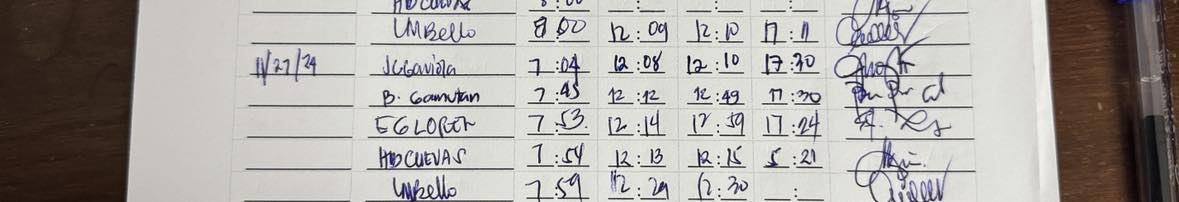 HDCUEVAS 8:00 : : :
LMBello 8:00 12:09 12:10 17:11
11/27/24 JGGaviola 7:04 12:08 12:10 17:30
B. Gamutan 7:45 12:12 12:49 17:30
EGLOREN 7:53 12:14 12:59 17:24
HDCUEVAS 7:54 12:13 12:15 5:21
LMBello 7:59 12:29 12:30 :